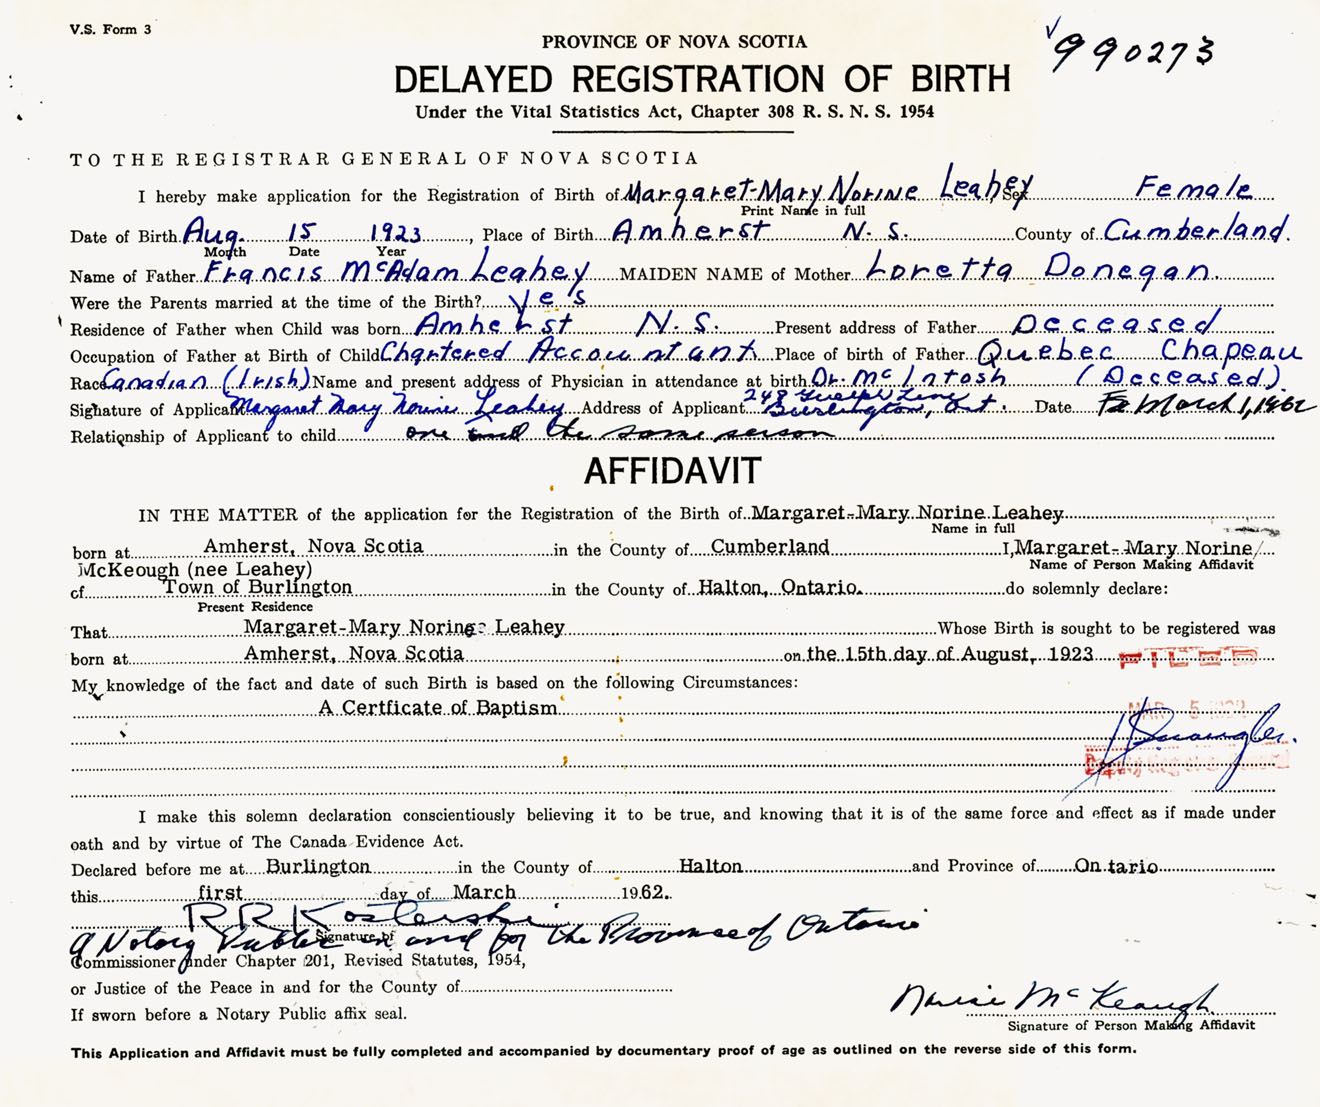 V.S. Form 3
PROVINCE OF NOVA SCOTIA
990273
DELAYED REGISTRATION OF BIRTH
Under the Vital Statistics Act, Chapter 308 R. S. N. S. 1954
TO THE REGISTRAR GENERAL OF NOVA SCOTIA
I hereby make application for the Registration of Birth of Margaret-Mary Norine Leahey, Sex Female
Print Name in full
Date of Birth Aug. 15 1923, Place of Birth Amherst N. S. County of Cumberland.
Month Date Year
Name of Father Francis McAdam Leahey MAIDEN NAME of Mother Loretta Donegan
Were the Parents married at the time of the Birth? Yes
Residence of Father when Child was born Amherst N. S. Present address of Father Deceased
Occupation of Father at Birth of Child Chartered Accountant Place of birth of Father Quebec Chapeau
Race Canadian (Irish) Name and present address of Physician in attendance at birth Dr. McIntosh (Deceased)
248 Guelph Line
Signature of Applicant Margaret Mary Norine Leahey Address of Applicant Burlington, Ont. Date March 1, 1962
Relationship of Applicant to child one and the same person
AFFIDAVIT
IN THE MATTER of the application for the Registration of the Birth of Margaret-Mary Norine Leahey
Name in full
born at Amherst, Nova Scotia in the County of Cumberland I, Margaret-Mary Norine/
McKeough (nee Leahey) Name of Person Making Affidavit
of Town of Burlington in the County of Halton, Ontario. do solemnly declare:
Present Residence
That Margaret-Mary Norine Leahey Whose Birth is sought to be registered was
born at Amherst, Nova Scotia on the 15th day of August, 1923 FILED
My knowledge of the fact and date of such Birth is based on the following Circumstances:
A Certficate of Baptism
MAR 5 1962
I make this solemn declaration conscientiously believing it to be true, and knowing that it is of the same force and effect as if made under
oath and by virtue of The Canada Evidence Act.
Declared before me at Burlington in the County of Halton and Province of Ontario
this first day of March 1962.
R R Kosterski
a Notary Public in and for the Province of Ontario
Signature of
Commissioner under Chapter 201, Revised Statutes, 1954,
or Justice of the Peace in and for the County of
Norine McKeough
If sworn before a Notary Public affix seal.
Signature of Person Making Affidavit
This Application and Affidavit must be fully completed and accompanied by documentary proof of age as outlined on the reverse side of this form.